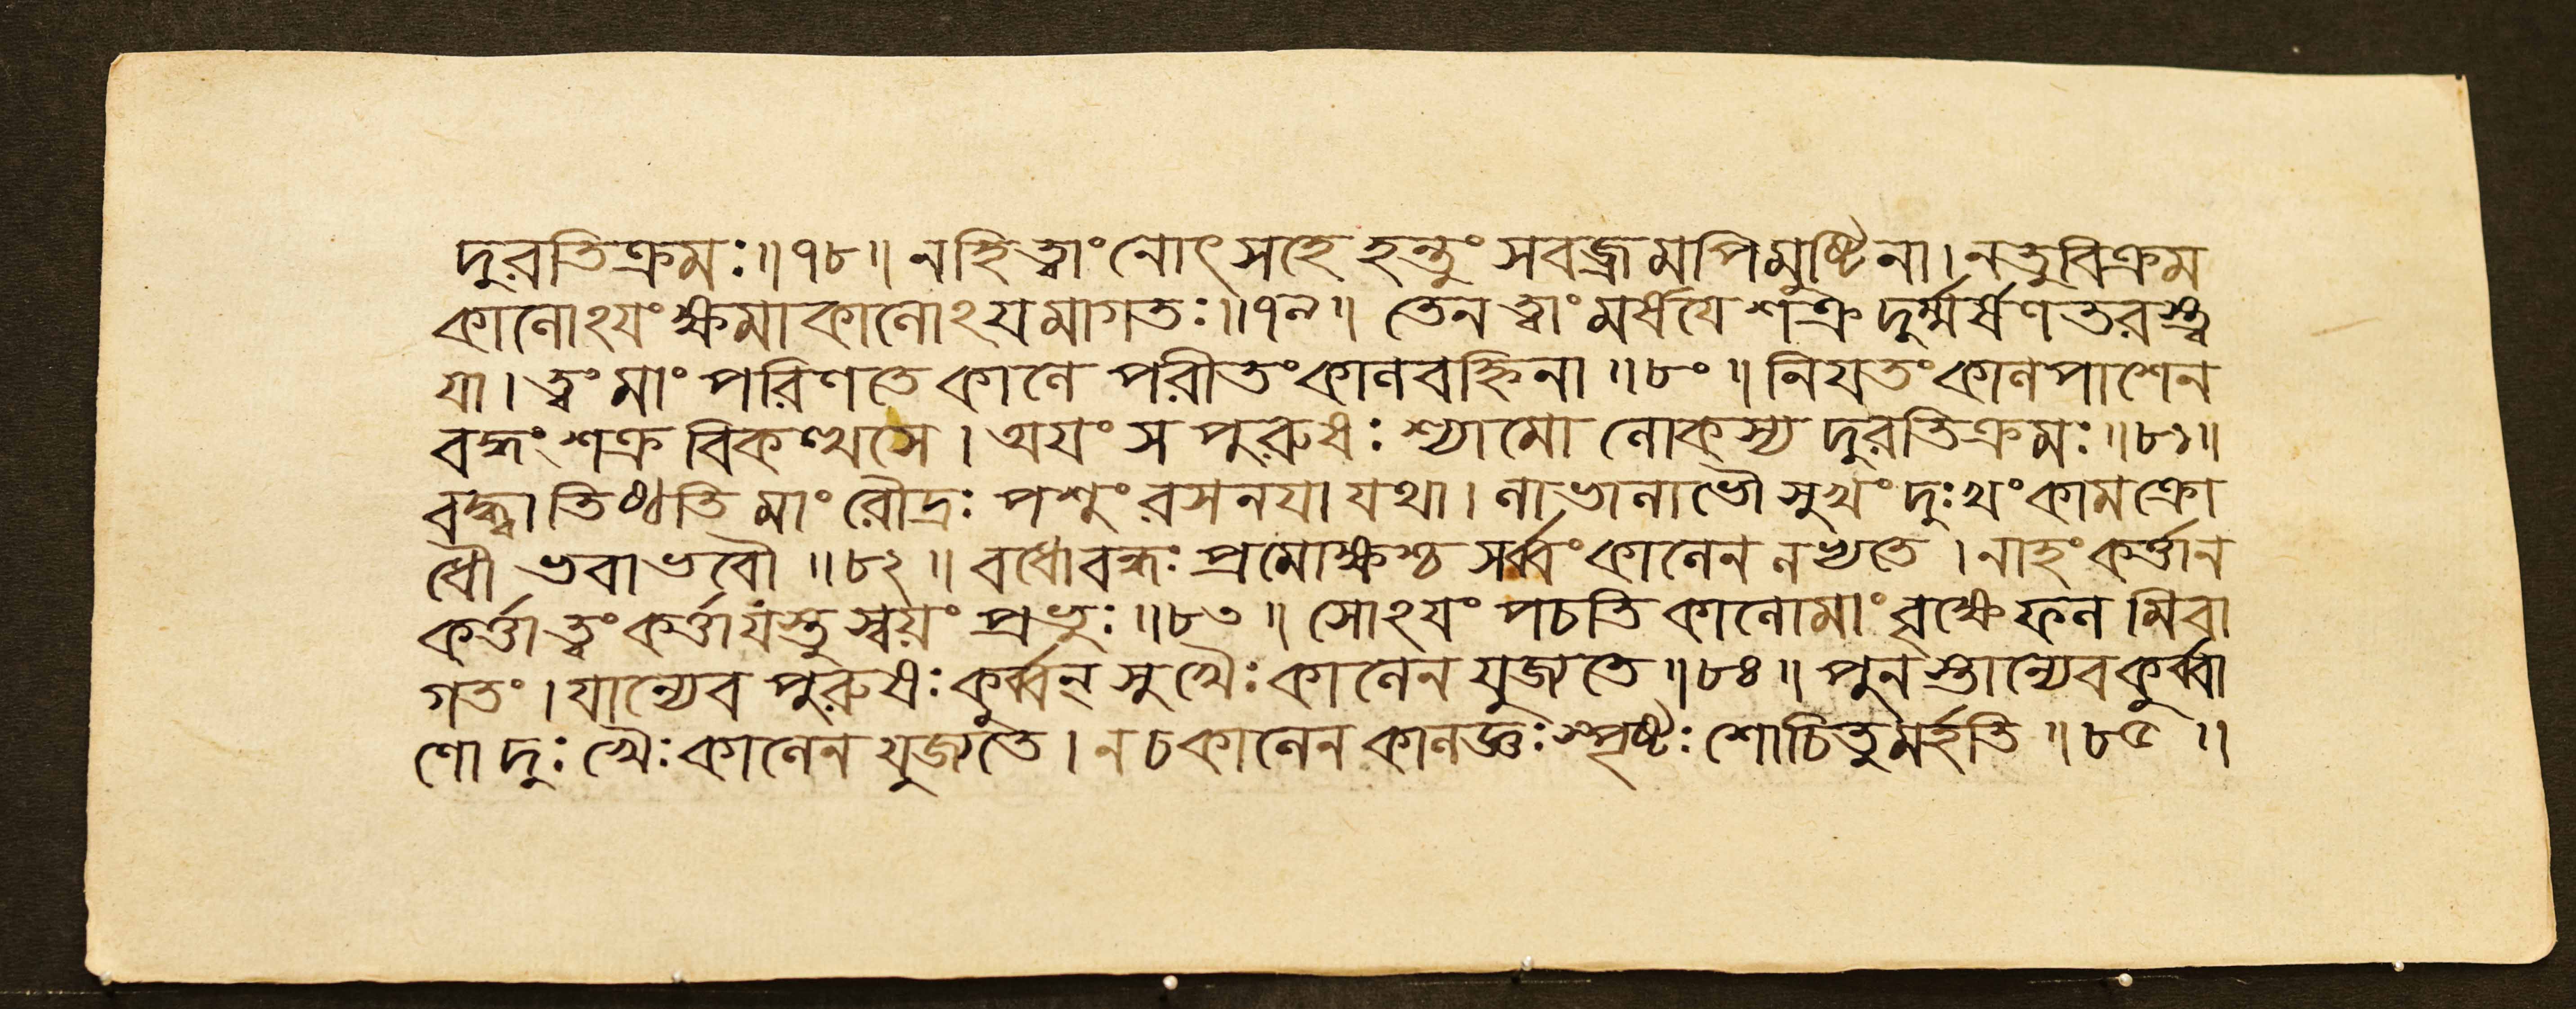 দুরতিক্রমঃ॥৭৮॥ নহি ত্বাং নোৎসহে হন্তুং সবজ্রমপিমুষ্টিনা। নতুবিক্রম
কালোঽযংক্ষমাকালোঽযমাগতঃ॥৭৯॥ তেনত্বাংমর্ষযেশক্র দুর্ম্মর্ষণতরস্ত্ব
যা। ত্বংমাং পরিণতে কালে পরীতংকালবহ্নিনা॥৮০॥ নিযতংকালপাশেন
বদ্ধং শক্র বিকত্থসে। অযং স পুরুষঃ শ্যামো লোকস্য দুরতিক্রমঃ॥৮১॥
বদ্ধ্বা তিষ্ঠতি মাং রৌদ্রঃ পশুং রসনযা যথা। লাভালাভৌ সুখং দুঃখং কামক্রো
ধৌ ভবাভবৌ॥৮২॥ বধোবন্ধঃ প্রমোক্ষশ্চ সর্ব্বংকালেন লভ্যতে। নাহং কর্ত্তান
কর্ত্তা ত্বং কর্ত্তাযস্তু স্বযং প্রভুঃ॥৮৩॥ সোঽযং পচতি কালোমাং বৃক্ষে ফলমিবা
গতং। যান্যেব পুরুষঃ কুর্ব্বন্ সুখৈঃ কালেন যুজ্যতে॥৮৪॥ পুনস্তান্যেবকুর্ব্বা
ণো দুঃখৈঃ কালেন যুজ্যতে। ন চ কালেন কালজ্ঞঃ স্পৃষ্টঃ শোচিতুমর্হতি॥৮৫॥